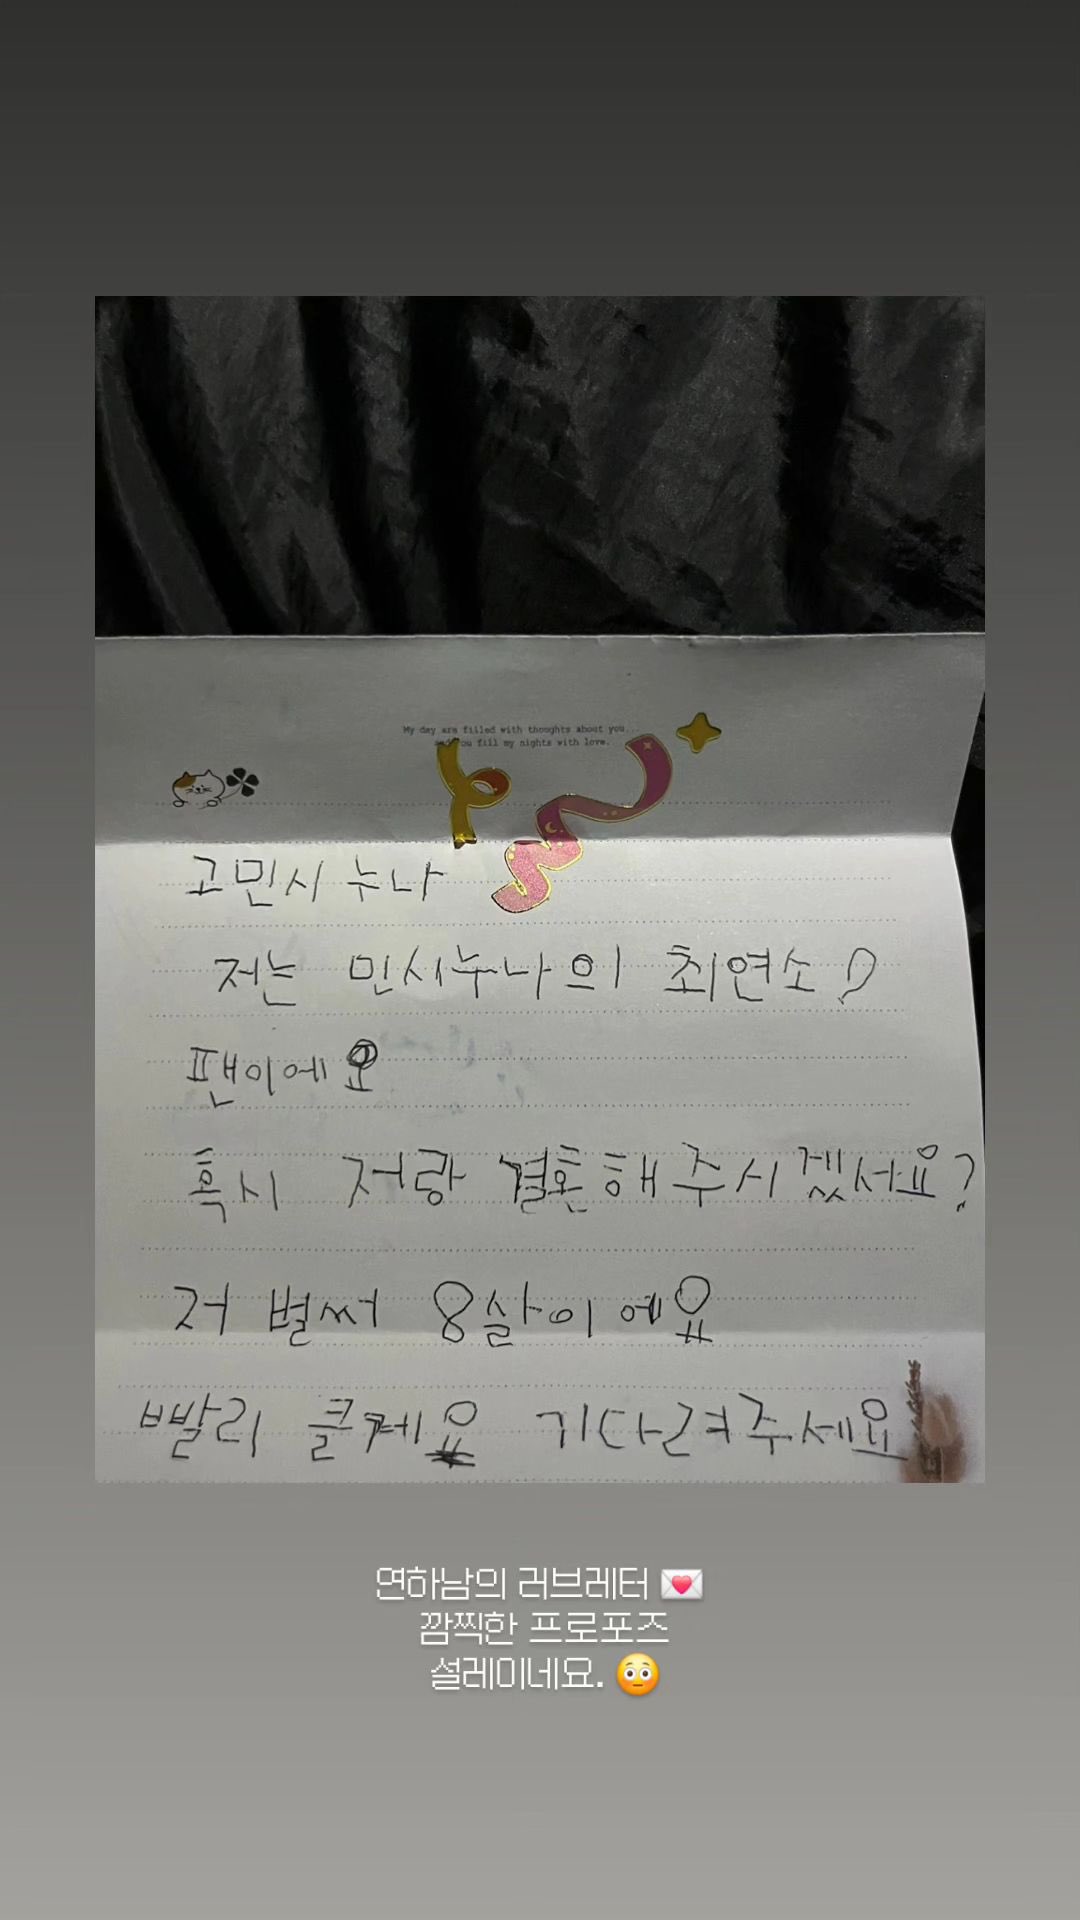 My day are filled with thoughts about you...
you fill my nights with love.
고민시 누나
저는 민시누나의 최연소
팬이에요
혹시 저랑 결혼해주시겠서요?
저 벌써 8살이에요
빨리 클께요 기다려주세요
연하남의 러브레터 💌
깜찍한 프로포즈
설레이네요. 😳